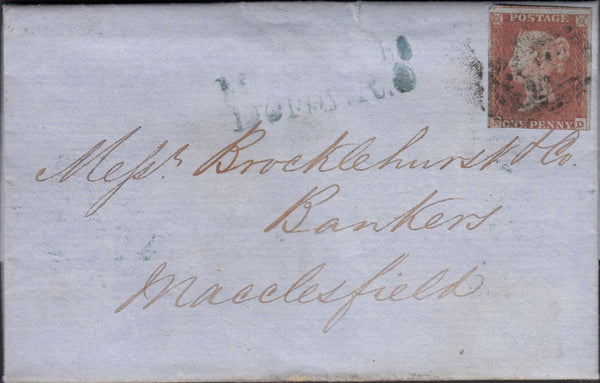 POSTAGE
ONE PENNY D
Messrs Brocklehurst & Co.
Bankers
Macclesfield